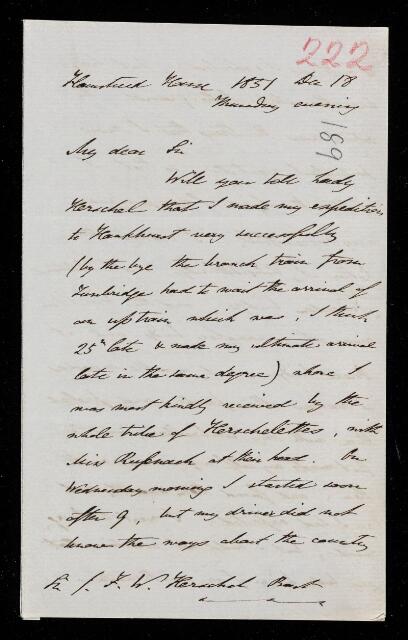 222
Flamsteed House 1851 Dec 18
Thursday evening
189
My dear Sir
Will you tell Lady
Herschel that I made my expedition
to Hawkhurst very successfully
(by the bye the branch train from
Tunbridge had to wait the arrival of
an up train which was, I think,
25m late & made my ultimate arrival
late in the same degree) where I
was most kindly received by the
whole tribe of Herschelettes, with
Miss at their head. On
Wednesday morning I started soon
after 9, but my driver did not
know the ways about the country
Sir J. F. W. Herschel Bart